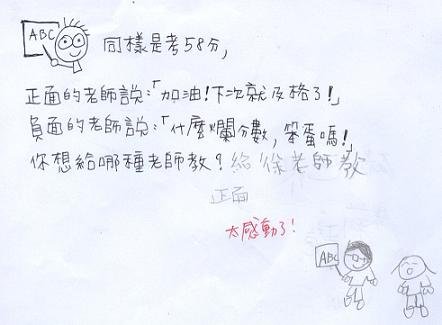 ABC
同樣是考58分,
正面的老師說:「加油!下次就及格了!」
負面的老師說:「什麼爛分數,笨蛋嗎!」
你想給哪種老師教?給徐老師教
正面
太感動了!
ABC